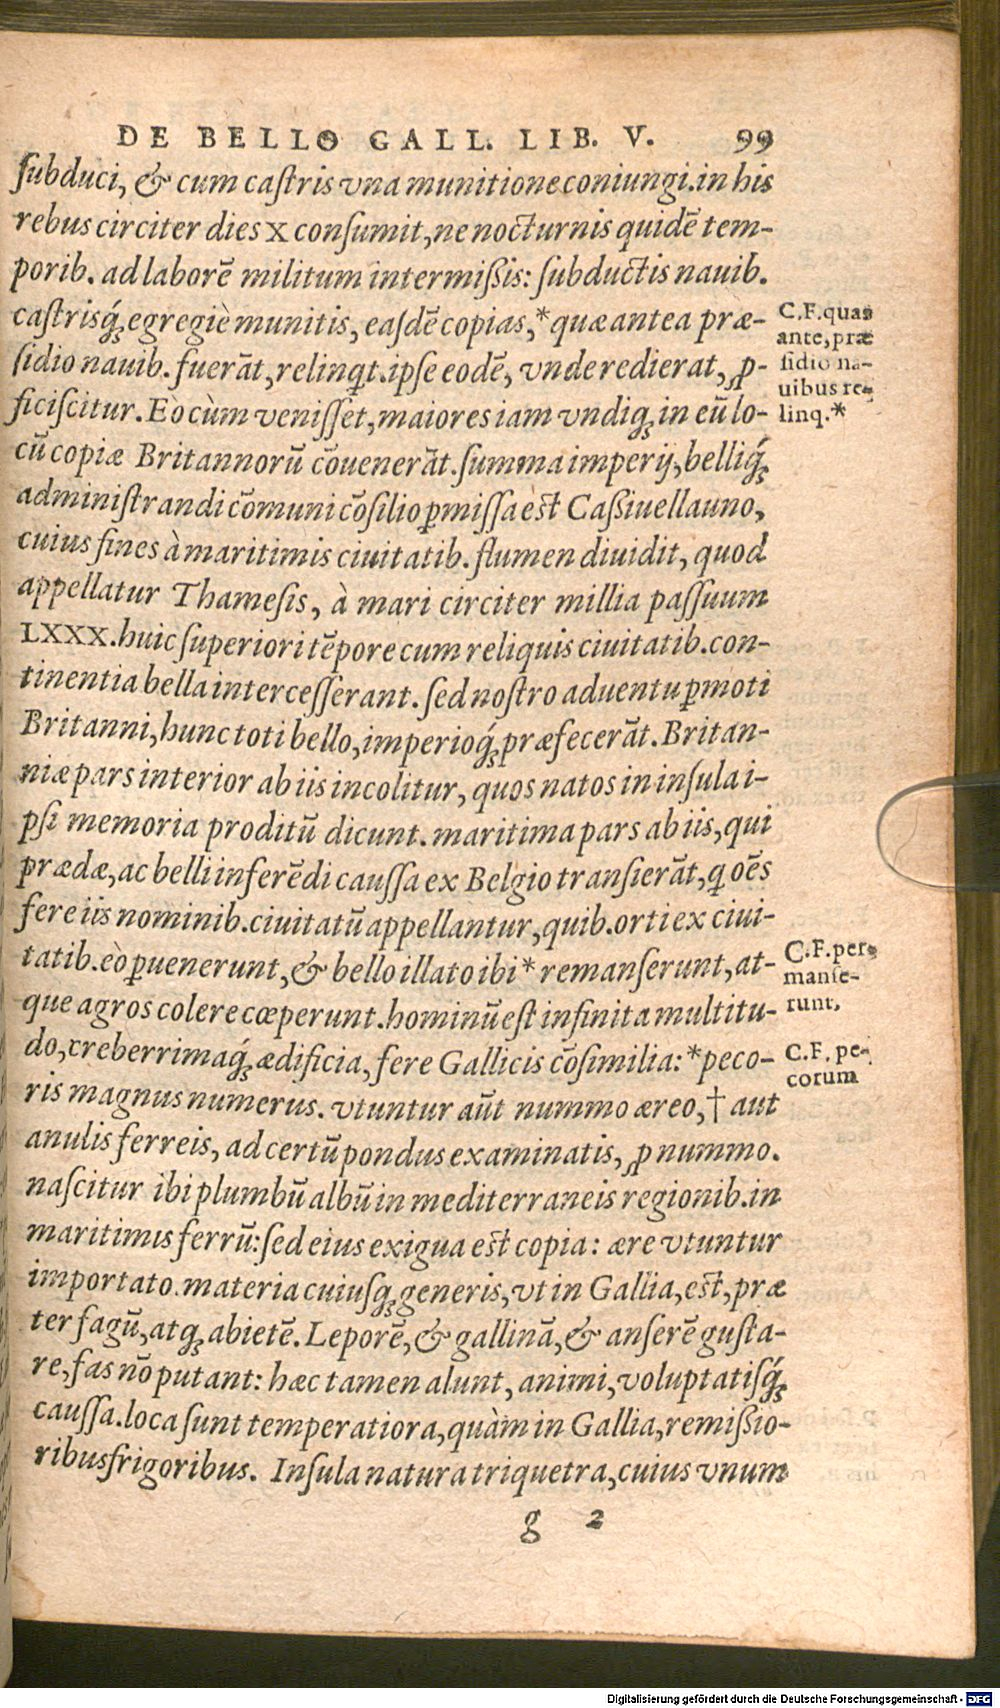 DE BELLO GALL. LIB. V. 99
ſubduci, & cum caſtris vna munitione coniungi. in his
rebus circiter dies X conſumit, ne nocturnis quidē tem-
porib. ad laborē militum intermiſsis: ſubductis nauib.
caſtrisq́; egregiè munitis, eaſdē copias, * quæ antea præ-
ſidio nauib. fuerāt, relinq̄t. ipſe eodē, vnde redierat, ꝓ-
ficiſcitur. Eò cùm veniſſet, maiores iam vndiq; in eū lo-
cū copiæ Britannorū cōuenerāt. ſumma imperij, belliq́;
adminiſtrandi cōmuni cōſilio ꝑmiſſa est Caſsiuellauno,
cuius fines à maritimis ciuitatib. flumen diuidit, quod
appellatur Thameſis, à mari circiter millia paſſuum
LXXX. huic ſuperiori tēpore cum reliquis ciuitatib. con-
tinentia bella interceſſerant. ſed noſtro aduentu ꝑmoti
Britanni, hunc toti bello, imperioq́; præfecerāt. Britan-
niæ pars interior ab iis incolitur, quos natos in inſula i-
pſi memoria proditū dicunt. maritima pars ab iis, qui
prædæ, ac belli inferēdi cauſſa ex Belgio tranſierāt, q oēs
fere iis nominib. ciuitatū appellantur, quib. orti ex ciui-
tatib. eò ꝑuenerunt, & bello illato ibi * remanſerunt, at-
que agros colere cœperunt. hominū eſt infinita multitu-
do, creberrimaq́; ædificia, fere Gallicis cōſimilia: * peco-
ris magnus numerus. vtuntur aūt nummo æreo, † aut
anulis ferreis, ad certū pondus examinatis, ꝓ nummo.
naſcitur ibi plumbū albū in mediterraneis regionib. in
maritimis ferrū: ſed eius exigua est copia: ære vtuntur
importato. materia cuiuſq; generis, vt in Gallia, est, præ
ter fagū, atq; abietē. Leporē, & gallinā, & anſerē guſta-
re, fas nō putant: hæc tamen alunt, animi, voluptatiſq́;
cauſſa. loca ſunt temperatiora, quàm in Gallia, remiſsio-
ribus frigoribus. Inſula natura triquetra, cuius vnum
g 2
C.F. quas
ante, præ
ſidio na-
uibus re-
linq. *
C.F. per-
manſe-
runt,
C.F. pe-
corum
Digitalisierung gefördert durch die Deutsche Forschungsgemeinschaft - DFG